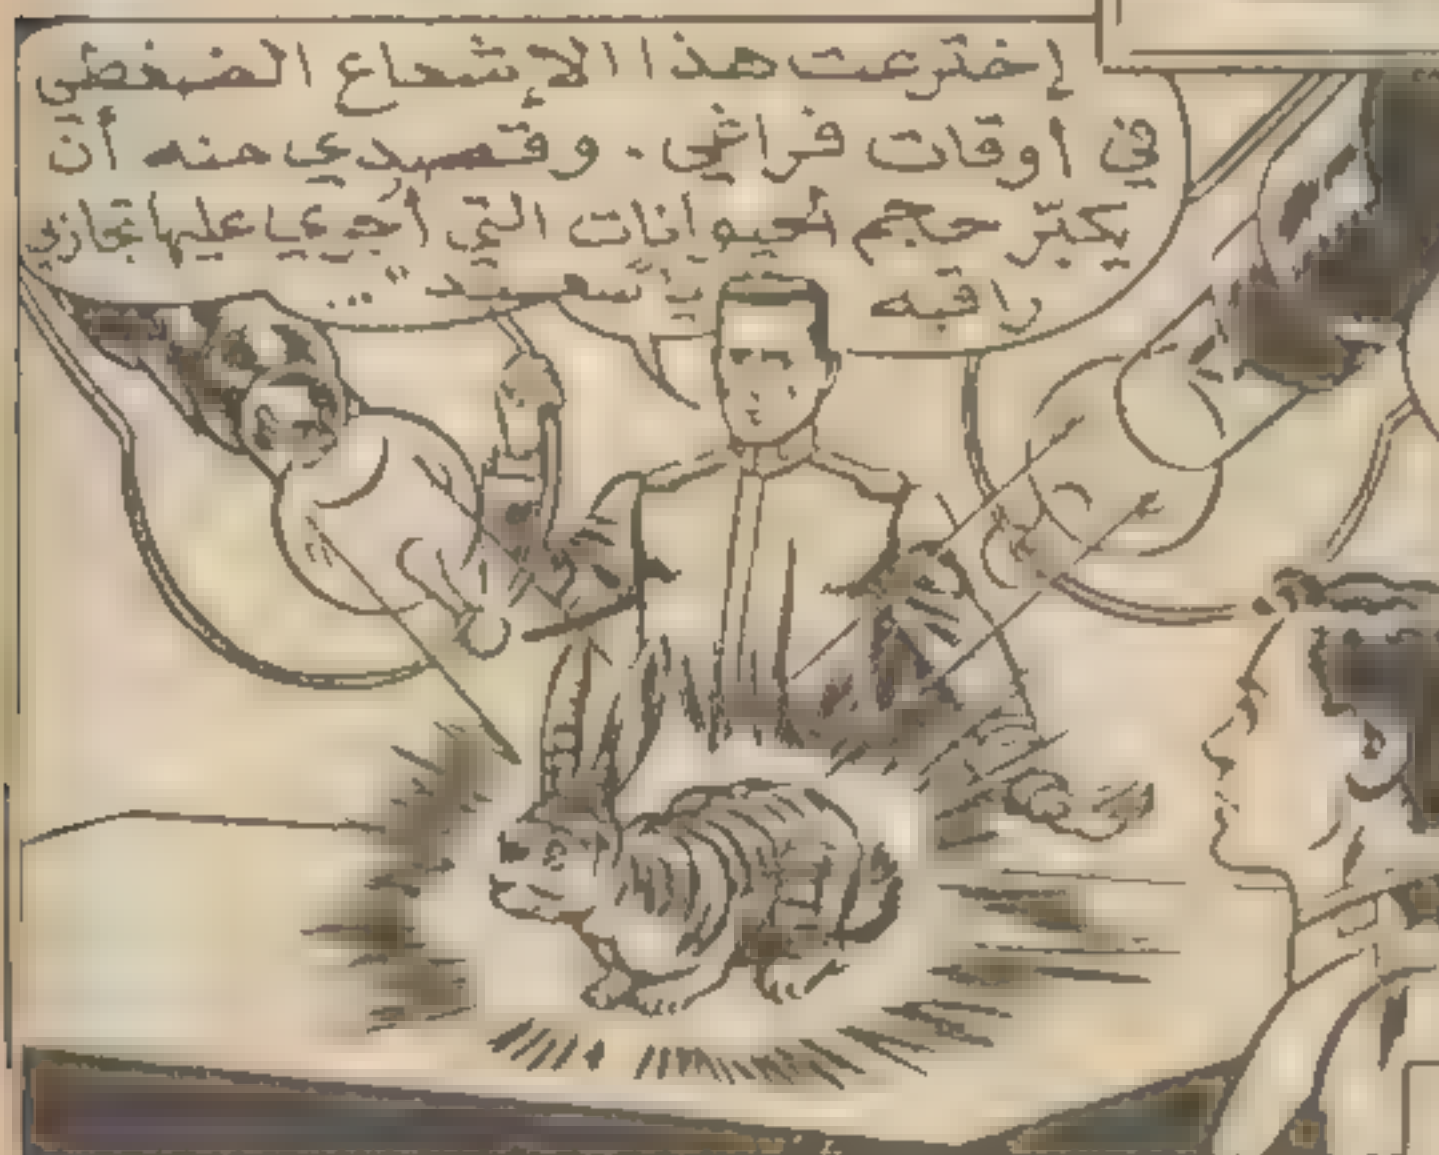 إخترعت هذا الإشعاع الضغطي
في أوقات فراغي . وقصدي منه أن
يكبّر حجم الحيوانات التي أجري عليها تجاربي
راقبه يا سيد "...